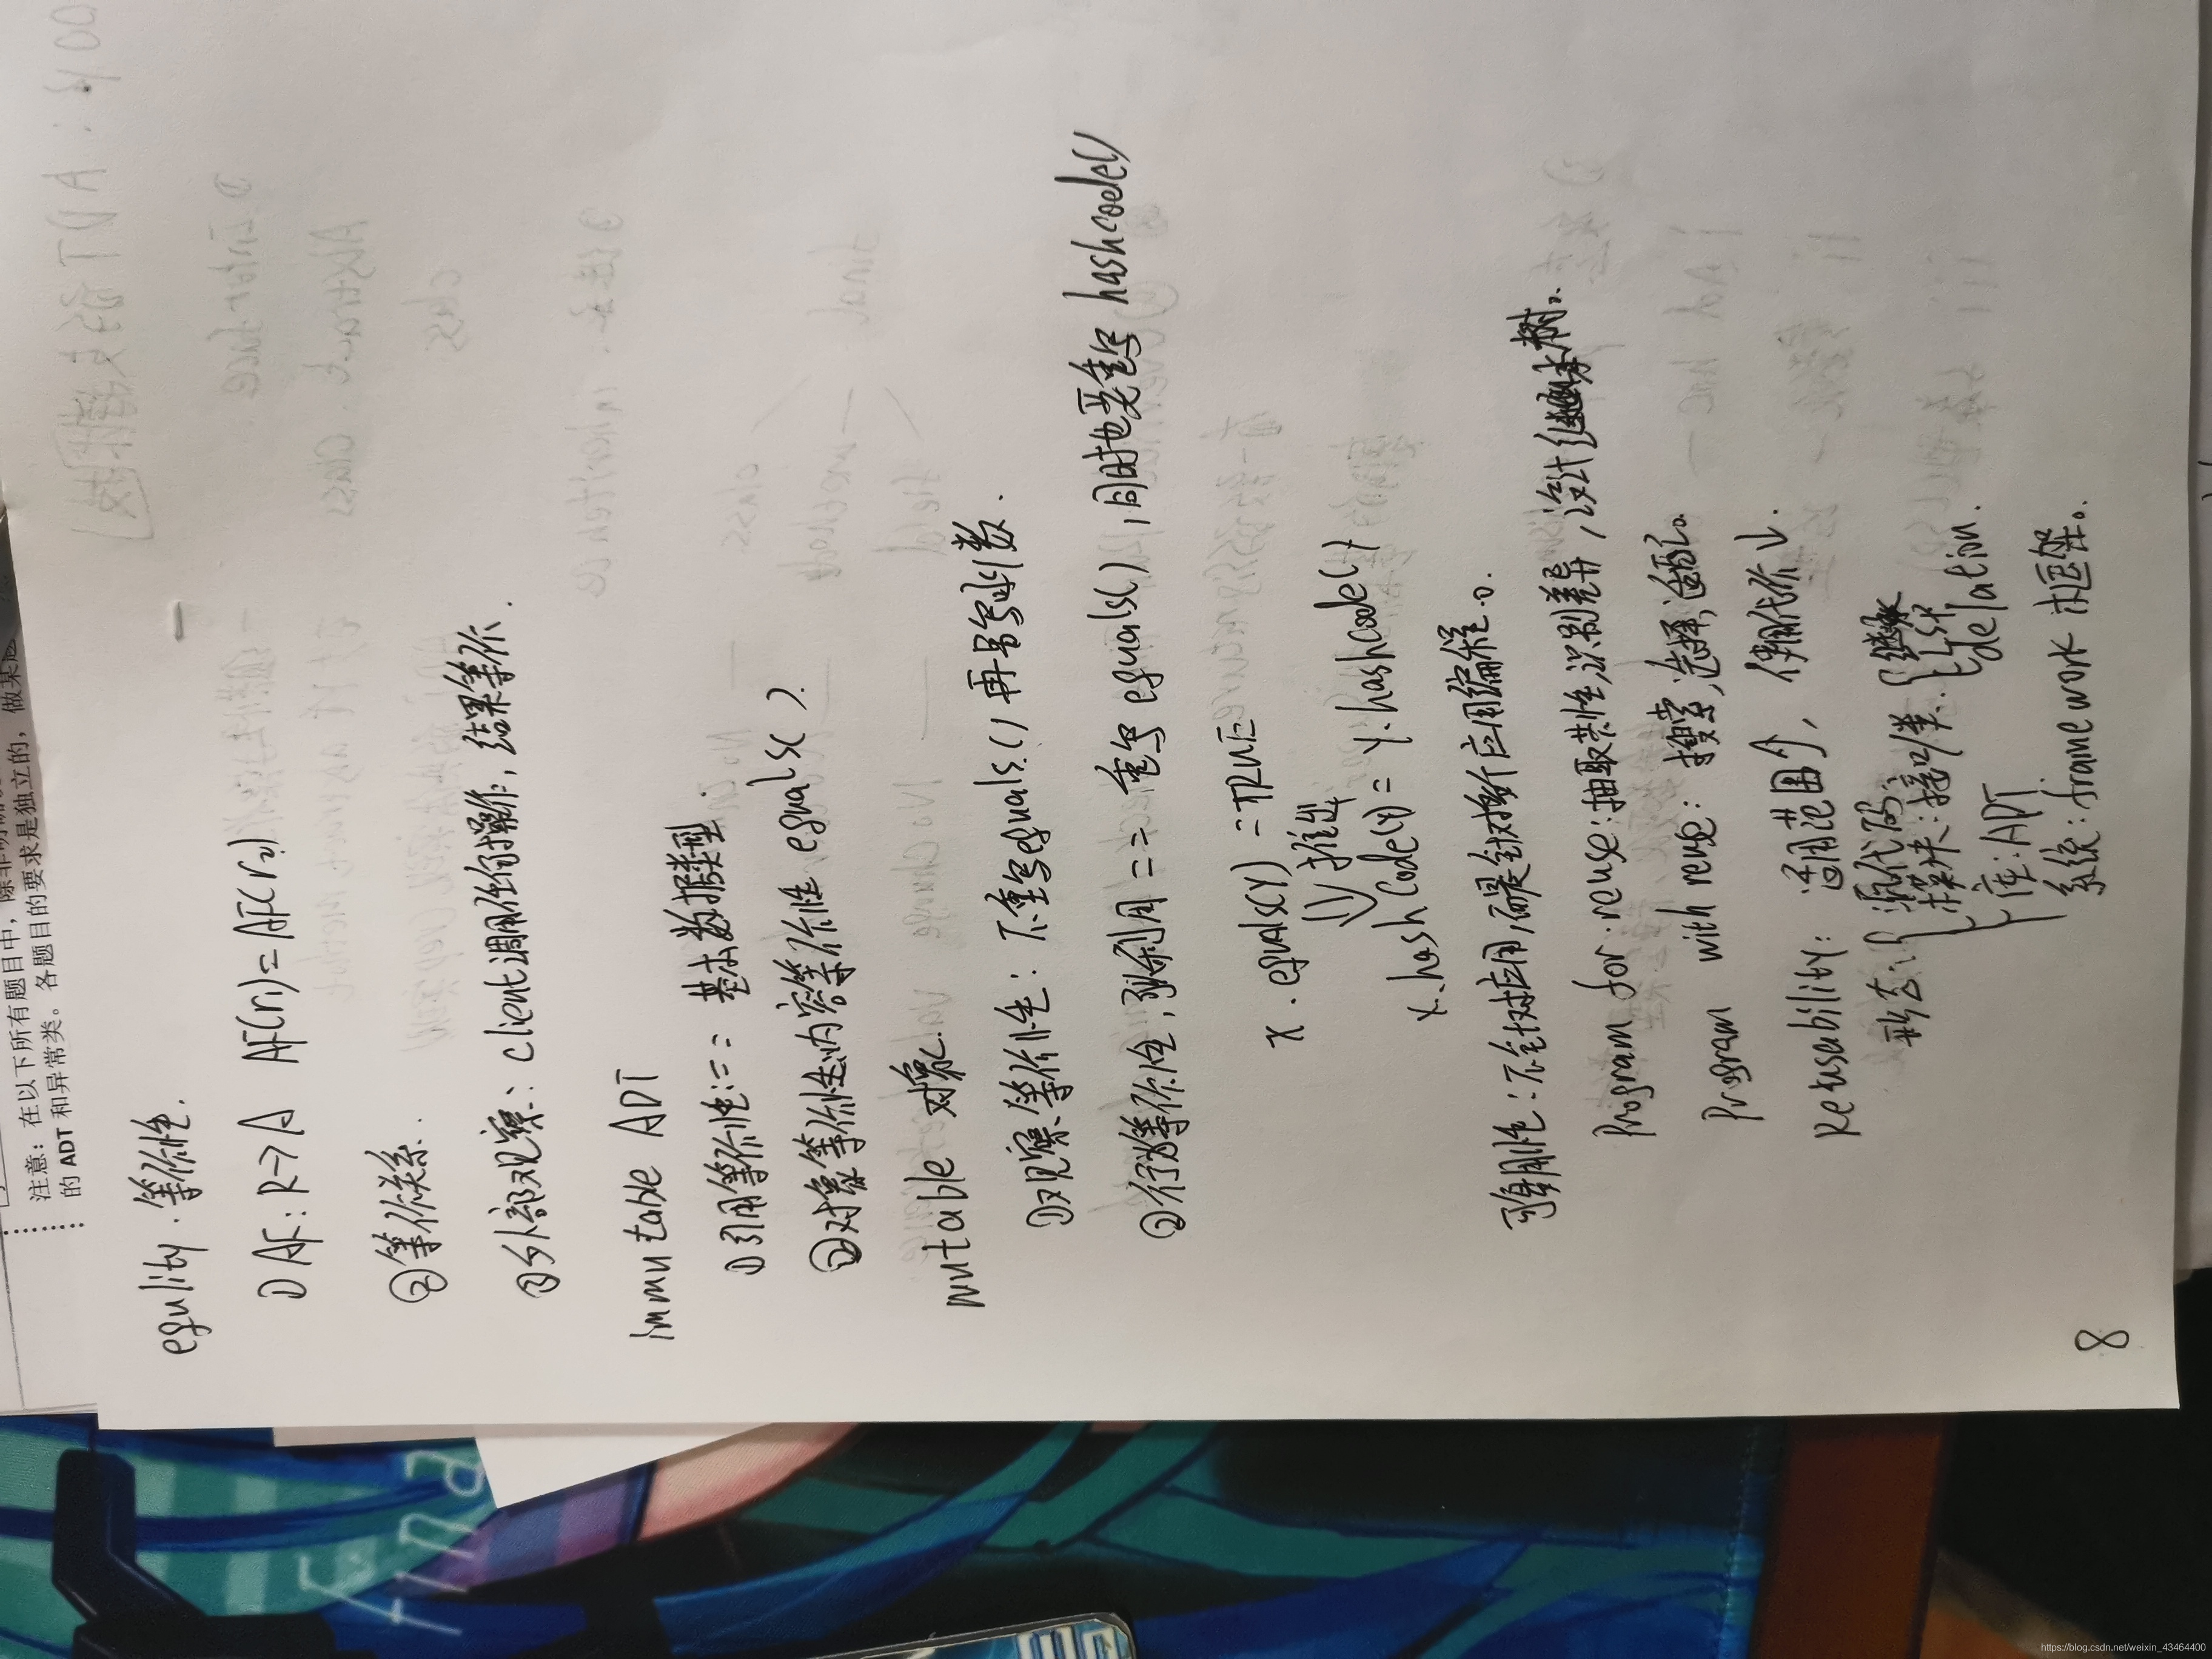 注意：在以下所有题目中，除非明确
的 ADT 和异常类。各题目的要求是独立的，做某题
equlity. 等价性.
① AF: R→A AF(r1)=AF(r2)
②等价关系.
③外部观察: client调用任何操作, 结果等价.
immutable ADT
①引用等价性: == 基本数据类型
②对象等价性:内容等价性 equals( ).
mutable 对象.
①观察等价性: 不重写equals.( ) 再另写函数.
②行为等价性, 利用 == 重写 equals( ), 同时也要重写 hashcode( )
x . equals(Y) = TRUE
⇓ 推出
x.hashCode(Y) = Y.hashCode( )
复用性: 不针对应用, 而是针对 应用编程。
Program for reuse: 抽取共性, 识别差异, 设计继承树。
Program with reuse: 搜索, 选择, 适配。
Reusability: 适用范围↑, 代价↓.
形态: 源代码
模块: 接口/类. 继承 LSP delation.
库: ADT
系统: framework 框架。
8
https://blog.csdn.net/weixin_43464400